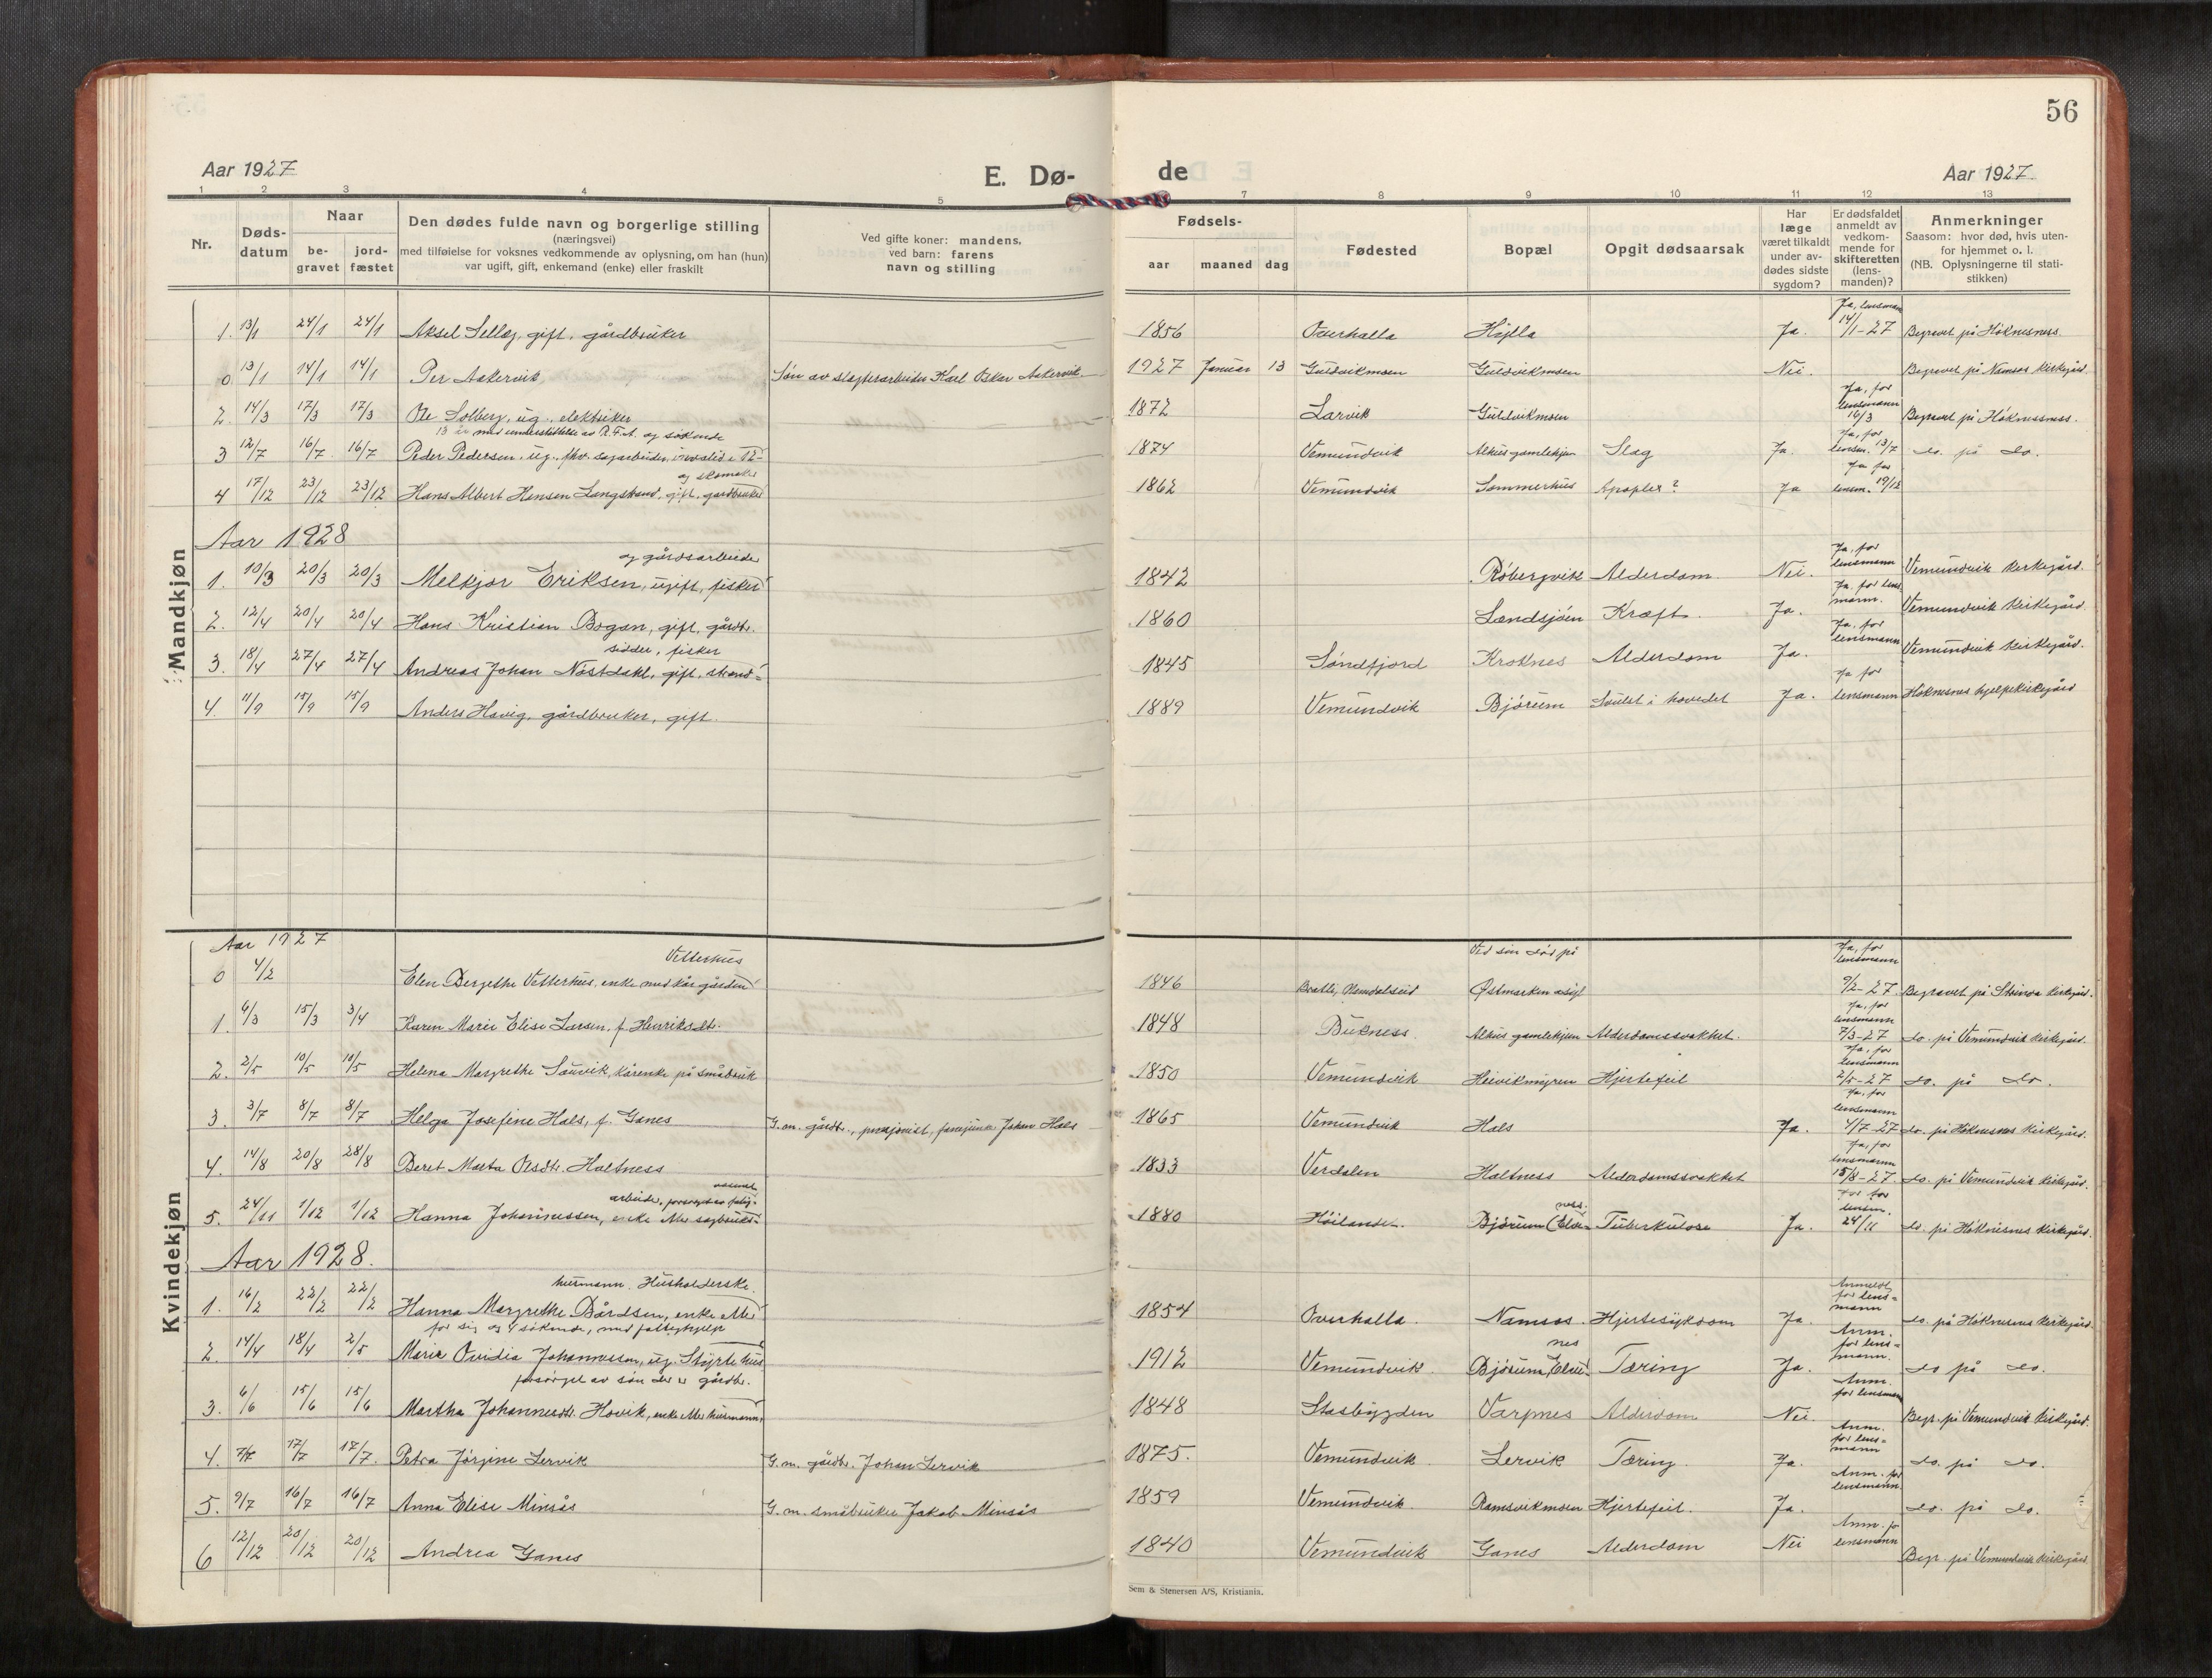 56
Aar 1927
E. Dø-
de
Aar 1927
1 2 3 4 5 7 8 9 10 11 12 13
Nr.
Døds-
datum
Naar
be-
gravet
jord-
fæstet
Den dødes fulde navn og borgerlige stilling
(næringsvei)
med tilføielse for voksnes vedkommende av oplysning, om han (hun)
var ugift, gift, enkemand (enke) eller fraskilt
Ved gifte koner: mandens,
ved barn: farens
navn og stilling
Fødsels-
aar maaned dag
Fødested
Bopæl
Opgit dødsaarsak
Har
læge
været tilkaldt
under av-
dødes sidste
sygdom?
Er dødsfaldet
anmeldt av
vedkom-
mende for
skifteretten
(lens-
manden)?
Anmerkninger
Saasom: hvor død, hvis uten-
for hjemmet o. l.
(NB. Oplysningerne til stati-
stikken)
Mandkjøn
Ja, lensmann
1. 13/1 24/1 24/1 Aksel Sellæg, gift, gårdbruker 1856 Overhalla Højlla Ja. 14/1-27 Begravet på Høknesness.
0 13/1 14/1 14/1 Per Aakervik Søn av slagteriarbeider Karl Oskar Aakervik 1927 Januar 13 Guldvikmoen Guldvikmoen Nei. Begravet på Namsos kirkegård
Ja, for
lensmann
2. 14/3 17/3 17/3 Ole Solberg, ug., elektriker 1872 Larvik Guldvikmoen 16/3 Begravet på Høknesness.
13 år med understøttelse av R.T.A. og søkende
Ja, for
3 12/7 16/7 16/7 Peder Pedersen, ug., fhv. sagarbeider, invalid i 12- 1874 Vemundvik Alhus gamlehjem Slag Ja. lensm. 13/7 do. på do.
og skomaker
Ja for
4 17/12 23/12 23/12 Hans Albert Hansen Langstrand, gift, gardbruker 1862 Vemundvik Sommerhus Apoplex? Ja lensm. 19/12
Aar 1928
og gårdsarbeider
Ja, for
lensmann
1. 10/3 20/3 20/3 Melkjor Eriksen, ugift, fisker 1842 Røbergvik Alderdom. Nei. Vemundvik kirkegård.
Ja, for lens
mann.
2. 12/4 20/4 20/4 Hans Kristian Bogan, gift, gårdbr. 1860 Landsjøen Kræft. Ja. Vemundvik kirkegård.
sidder, fisker
Ja, for
lensmann
3. 18/4 27/4 27/4 Andreas Johan Nøstdahl, gift, strand= 1845 Søndfjord Kroknes Alderdom Ja. Vemundvik kirkegård.
Ja for
4. 11/9 15/9 15/9 Anders Havig, gårdbruker, gift. 1889 Vemundvik Bjørum Svulst i hovedet Ja. lensmann Høknesnes hjelpekirkegård
Kvindekjøn
Aar 1927
Vetterhus
Ved sin død på
Ja, for
lensmann
0 4/2 Elen Bergethe Vetterhus, enke med kår gården 1846 Namdalseid Østmarken asyl 9/2-27 Begravet på Strinda kirkegård.
Ja, for
lensmann
1. 6/3 15/3 3/4 Karen Marie Elise Larsen, f. Henriksdtr. 1848 Bukness Alhus gamlehjem Alderdomssvakhet. 7/3-27 do. på Vemundvik kirkegård.
Ja, for
lensmann
2. 2/5 10/5 10/5 Helena Margrethe Sauvik, kårenke på småbruk 1850 Vemundvik Heivikmyren Hjertefeil 2/5-27 do. på do.
Ja, for
lensmann
3. 3/7 8/7 8/7 Helga Josefine Hals, f. Ganes G.m. gårdbr., Johan Hals 1865 Vemundvik Hals Ja. 4/7-27 do. på Høknesnes kirkegård.
Ja, for
lensmann
4. 14/8 20/8 28/8 Beret Marta Olsdtr. Holtness 1833 Verdalen Holtness Alderdomssvakhet 15/8-27. do. på Vemundvik kirkegård.
arbeider, forsørget av fattig=
væsenet
ness.
Ja for
lensm.
5. 24/11 1/12 1/12 Hanna Johannessen, enke efter sagbruks= 1880 Høilandet. Bjørum (Elve= Tuberkulose Ja. 24/11 do. på Høknesnes kirkegård.
Aar 1928.
husmann. Husholderske
Anmeldt
for lens=
mann
1. 16/2 22/2 22/2 Hanna Margrethe Bårdsen, enke efter 1854 Overhalla. Namsos. Hjertesykdom Ja. do. på Høknesnes kirkegård.
for sig og 4 søkende, med fattighjelp
nes
Anm.
for lens=
mann.
2. 14/4 18/4 2/5 Marie Ovidia Johannessen, ug. Styrte hus 1912 Vemundvik. Bjørum, Elve= Tæring Ja. do på do.
forsørget av søn der er gårdbr.
Anm.
for lensmann
3. 6/6 15/6 15/6 Martha Johannesdtr. Hovik, enke efter husmann, 1848 Stadsbygden Varpnes Alderdom Nei. Begr. på Vemundvik kirkegård.
Anm.
for lens=
mann
4. 7/7 17/7 17/7. Petra Jørgine Lervik G.m. gårdbr. Johan Lervik 1875. Vemundvik. Lervik Tæring. Ja. do. på do.
Anm. for
lensmann.
5. 9/7 16/7 16/7 Anna Elise Minsås G.m. småbruker Jakob Minsås 1859 Vemundvik. Ramsvikmoen Hjertefeil. Ja. do. på do.
Anm. for
lensmann
6 12/12 20/12 20/12 Andrea Ganes 1840 Vemundvik Ganes Alderdom Nei Begr. på Vemundvik kirkegård
Sem & Stenersen A/S, Kristiania.